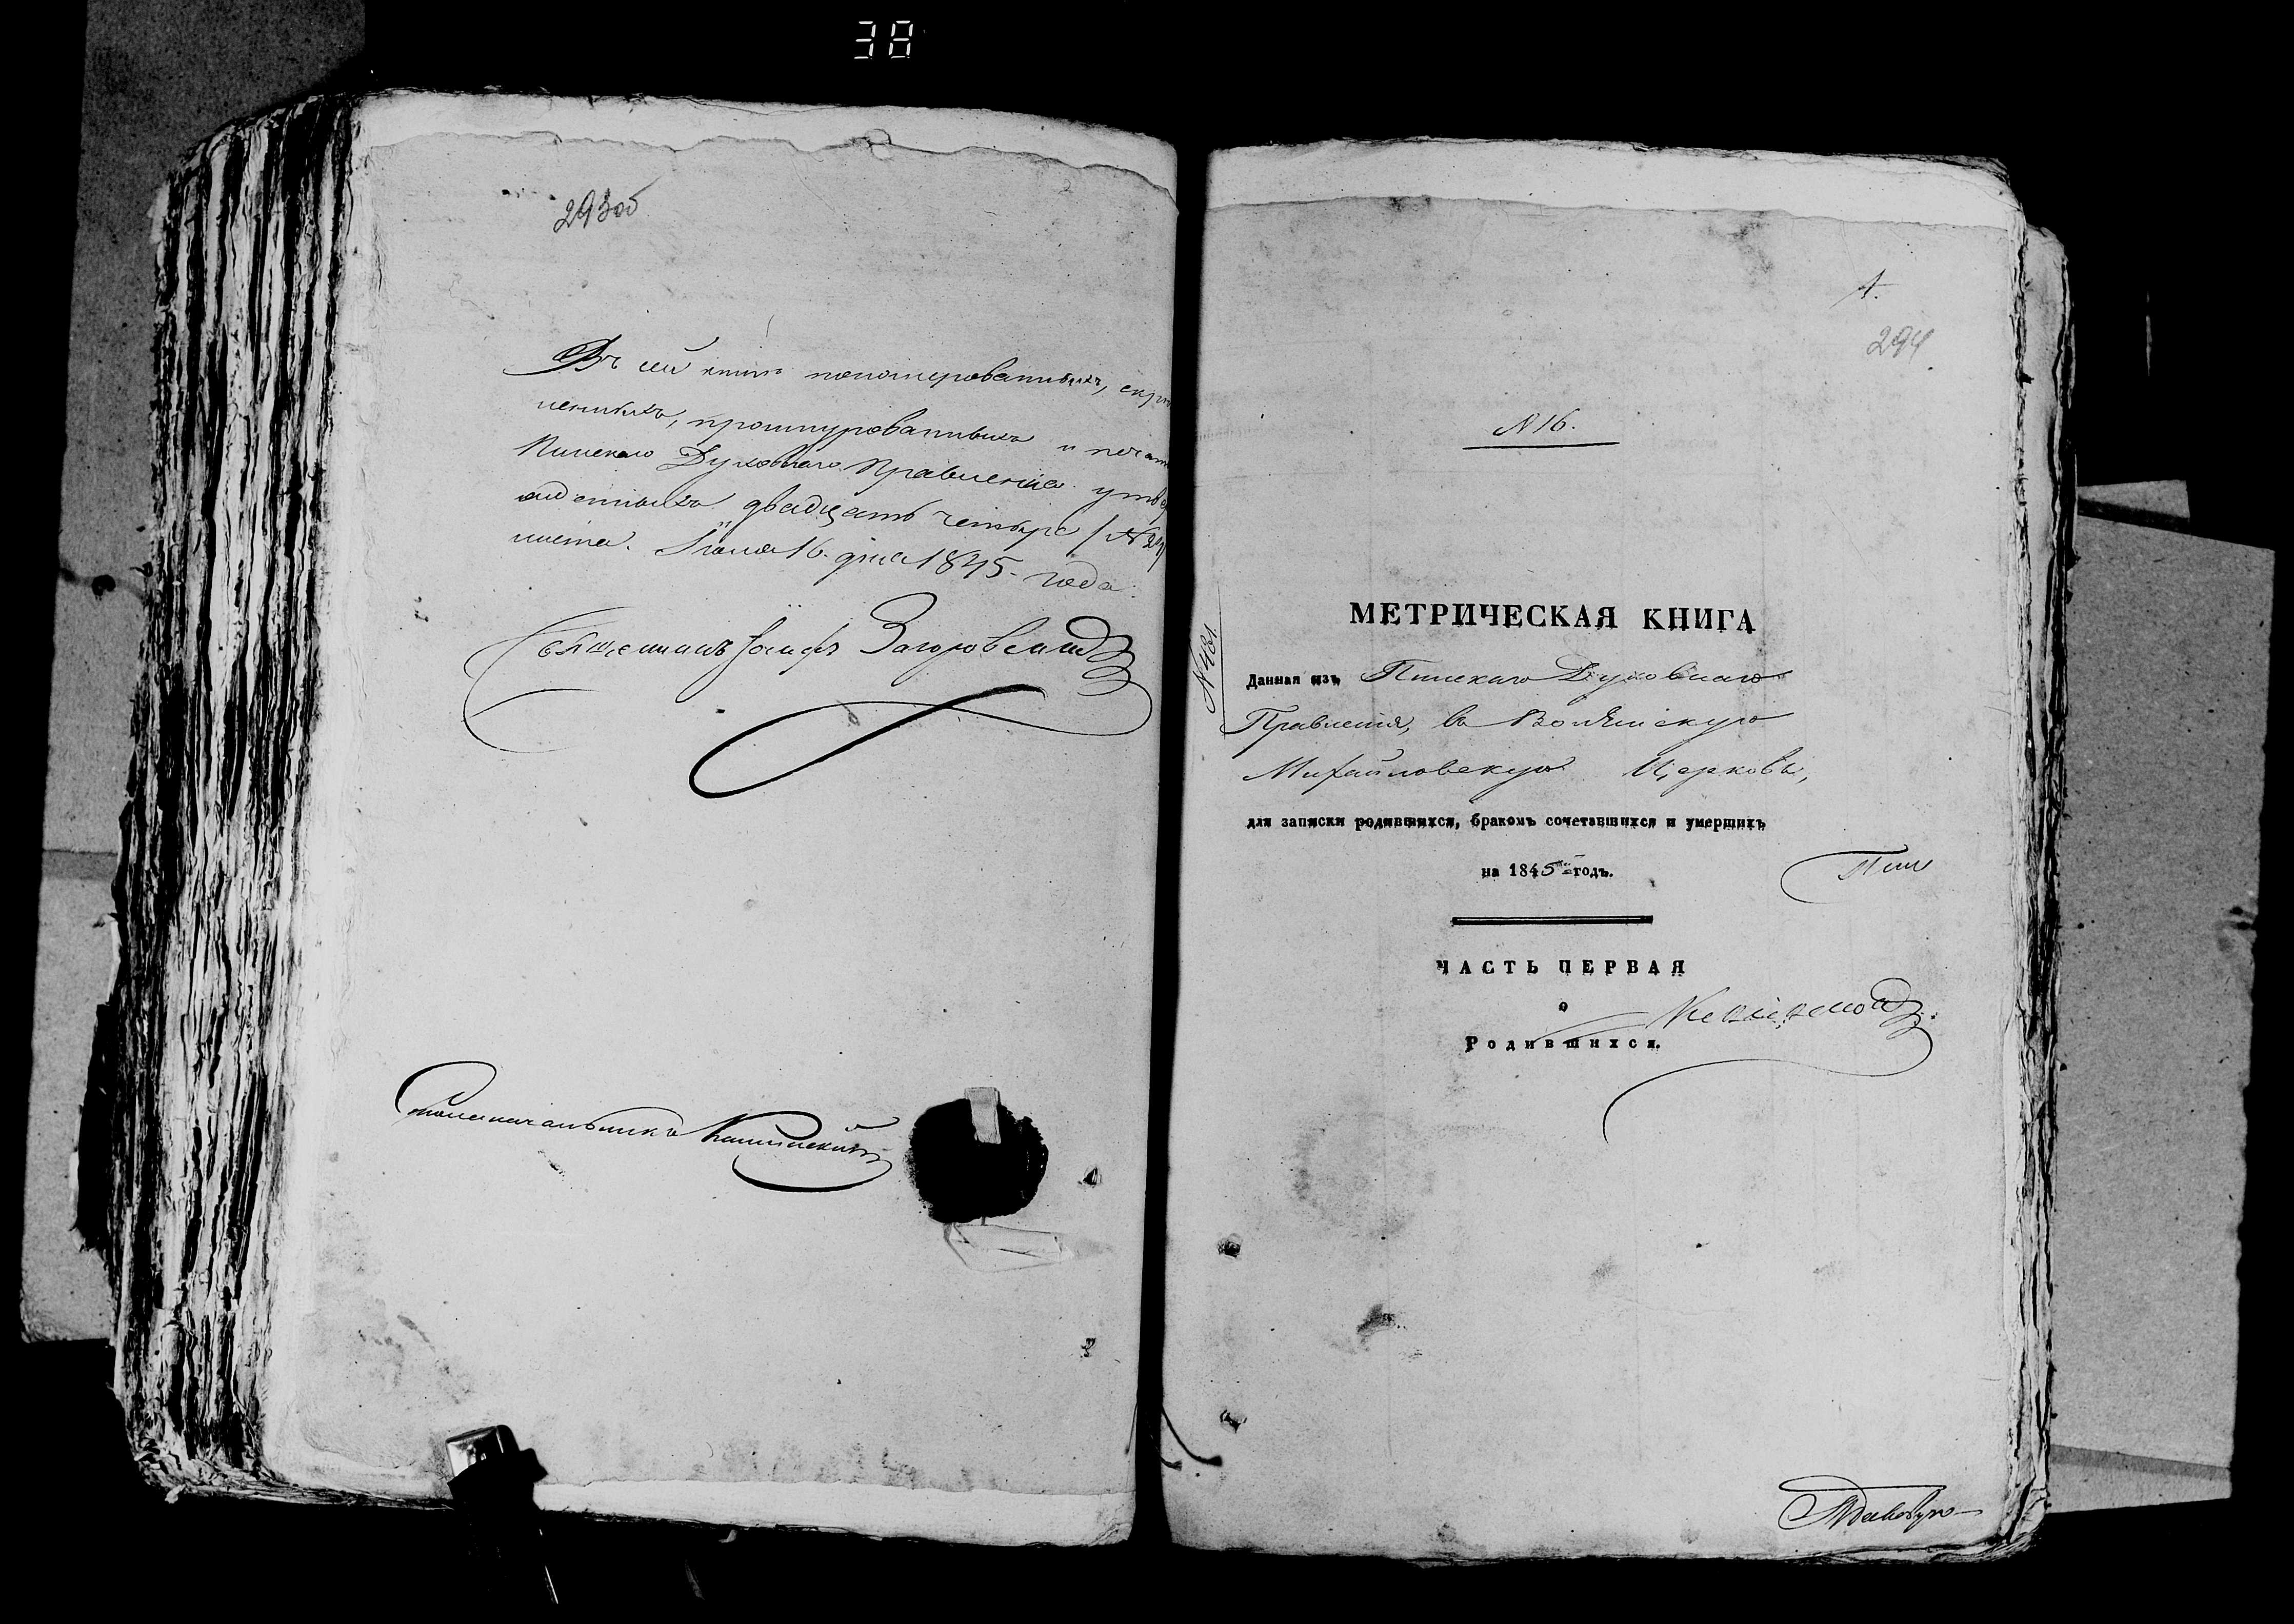 38
293об
Въ сей книге пономерованныхъ, скрѣ
пленныхъ, прошнурованныхъ и печат
Пинскаго Духовнаго Правленія утвер
жденныхъ двадцать четыре / №24/
листа. Іюня 16. дня 1845. года.
Священникъ Іосифъ
Столоначальникъ
1.
294
№ 16.
№ 481
МЕТРИЧЕСКАЯ КНИГА
Данная изъ Пинскаго Духовнаго
Правленія, въ
Михайловскую Церковь,
для записки родившихся, бракомъ сочетавшихся и умершихъ
на 1845 годъ.
Пин
ЧАСТЬ ПЕРВАЯ
о
Родившихся.